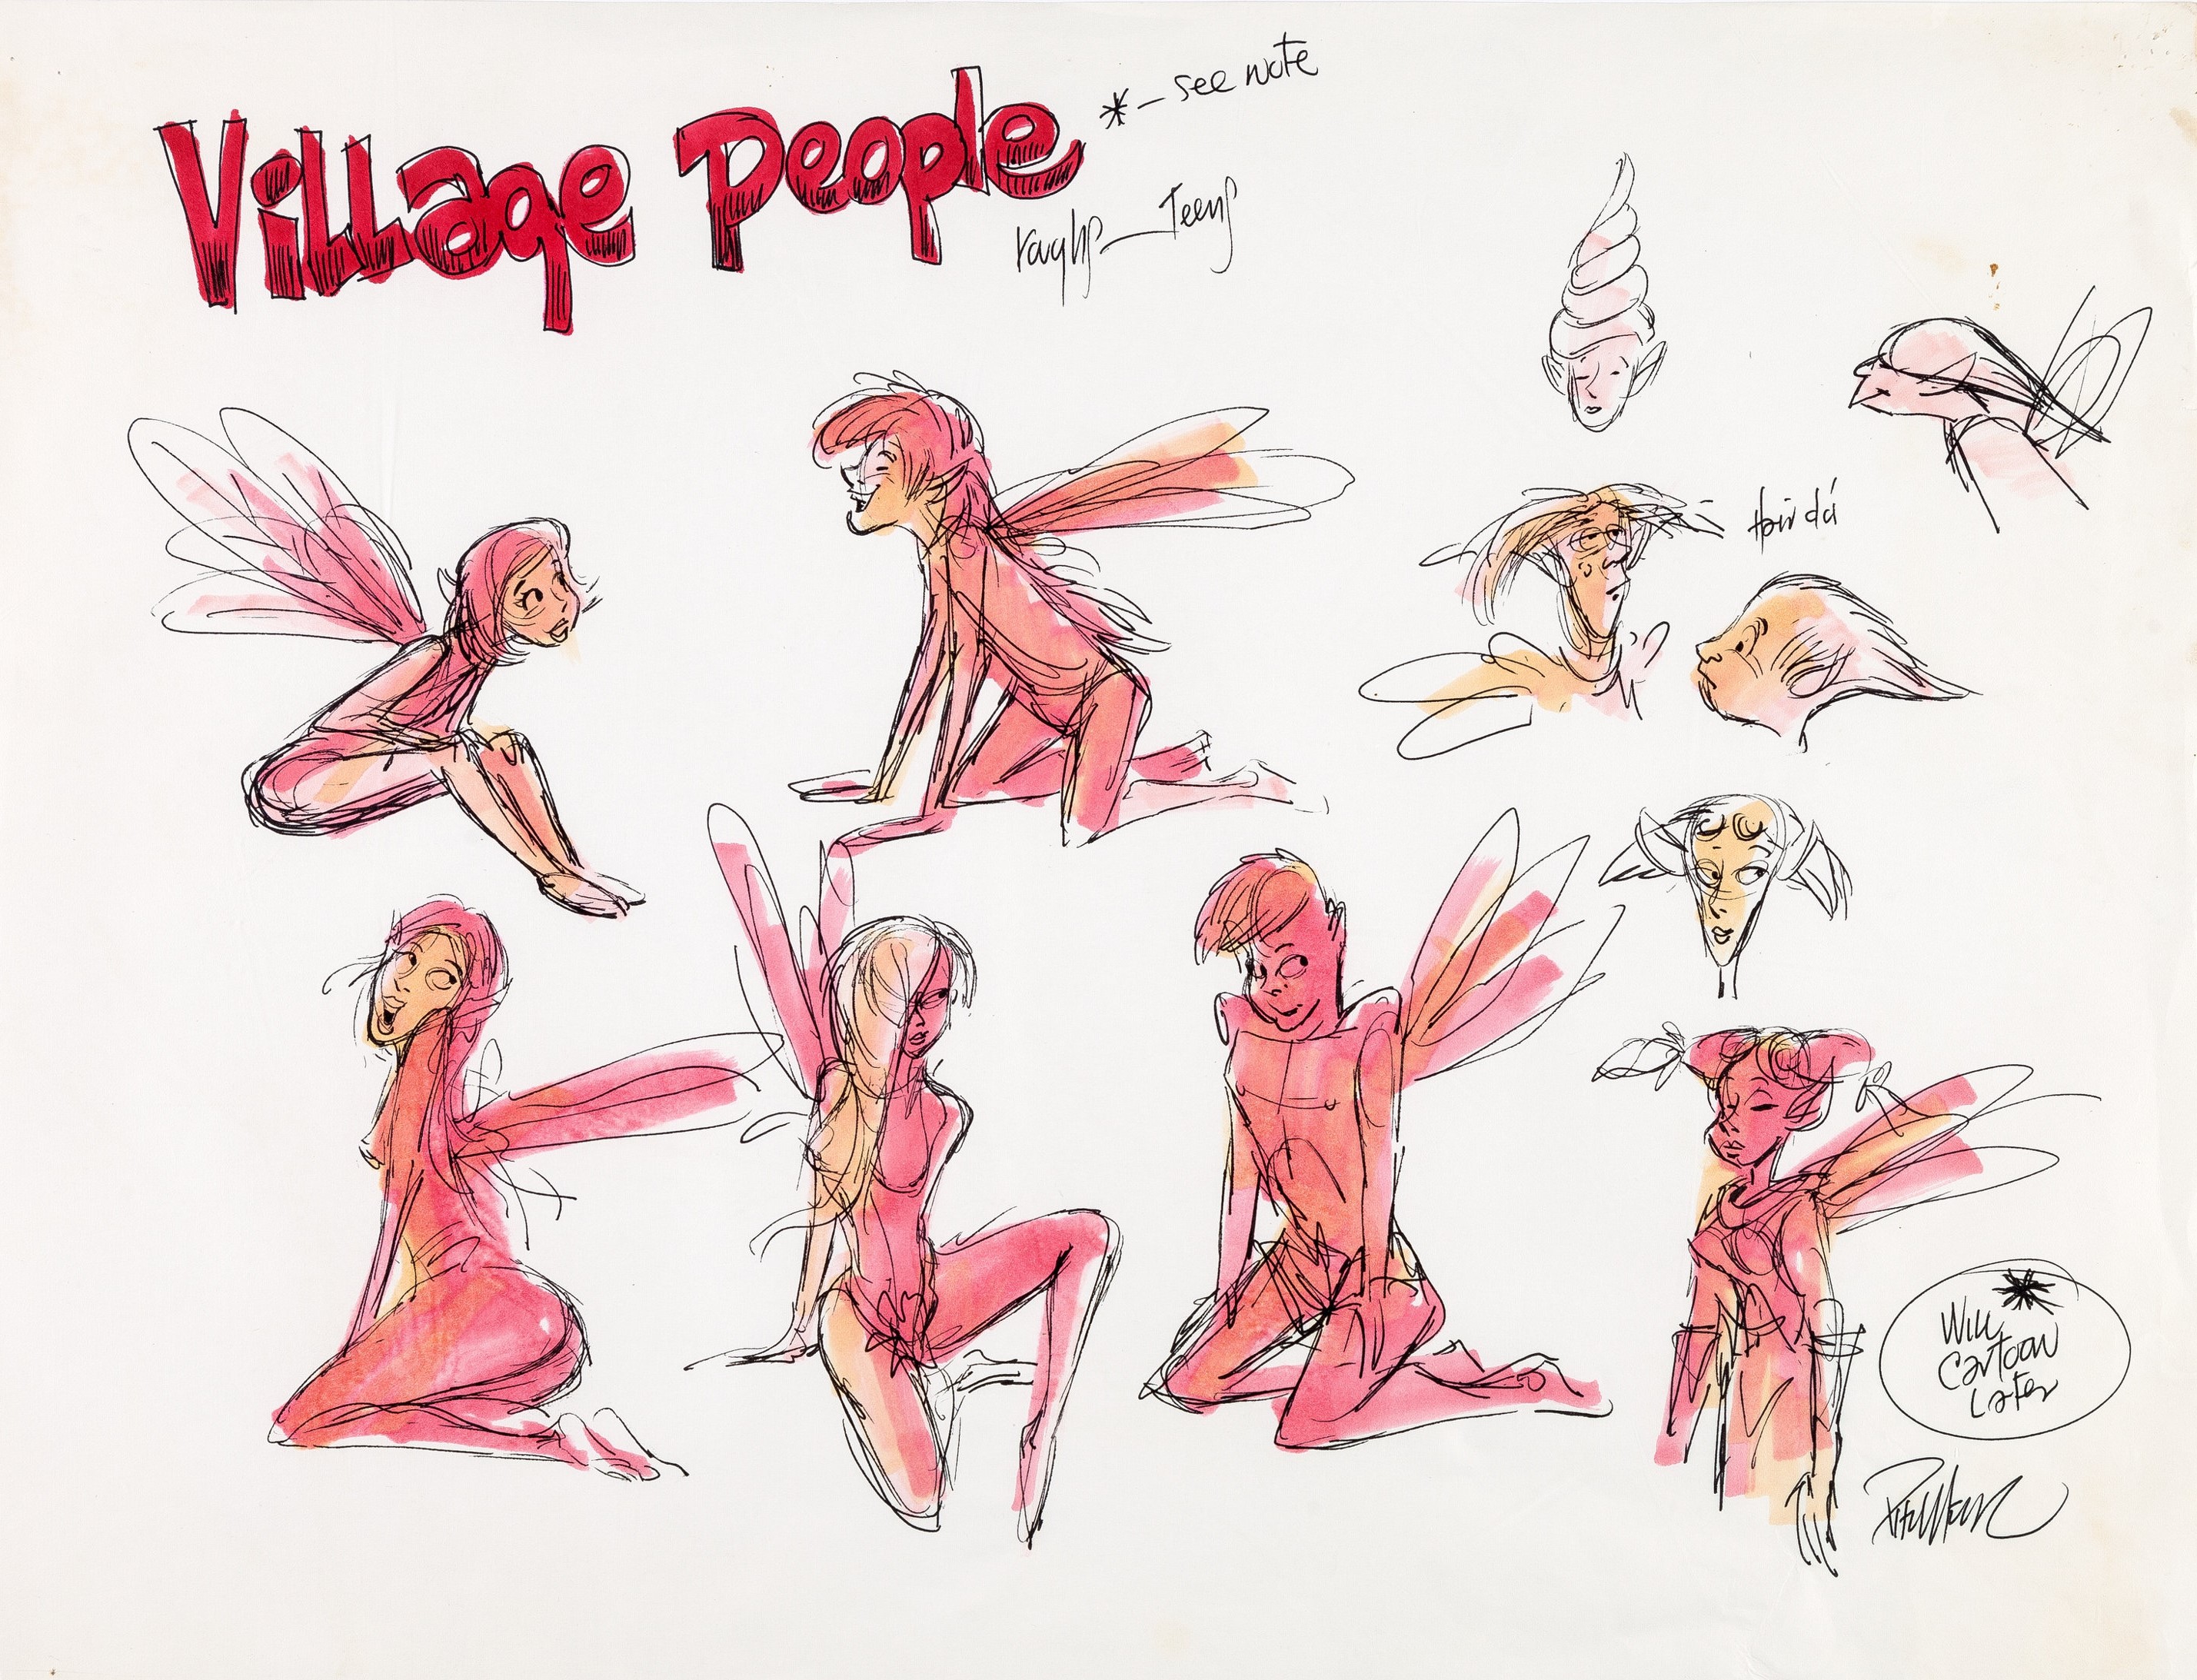 Village People
* – see note
roughs – Teens
*
Will
Cartoon
Later